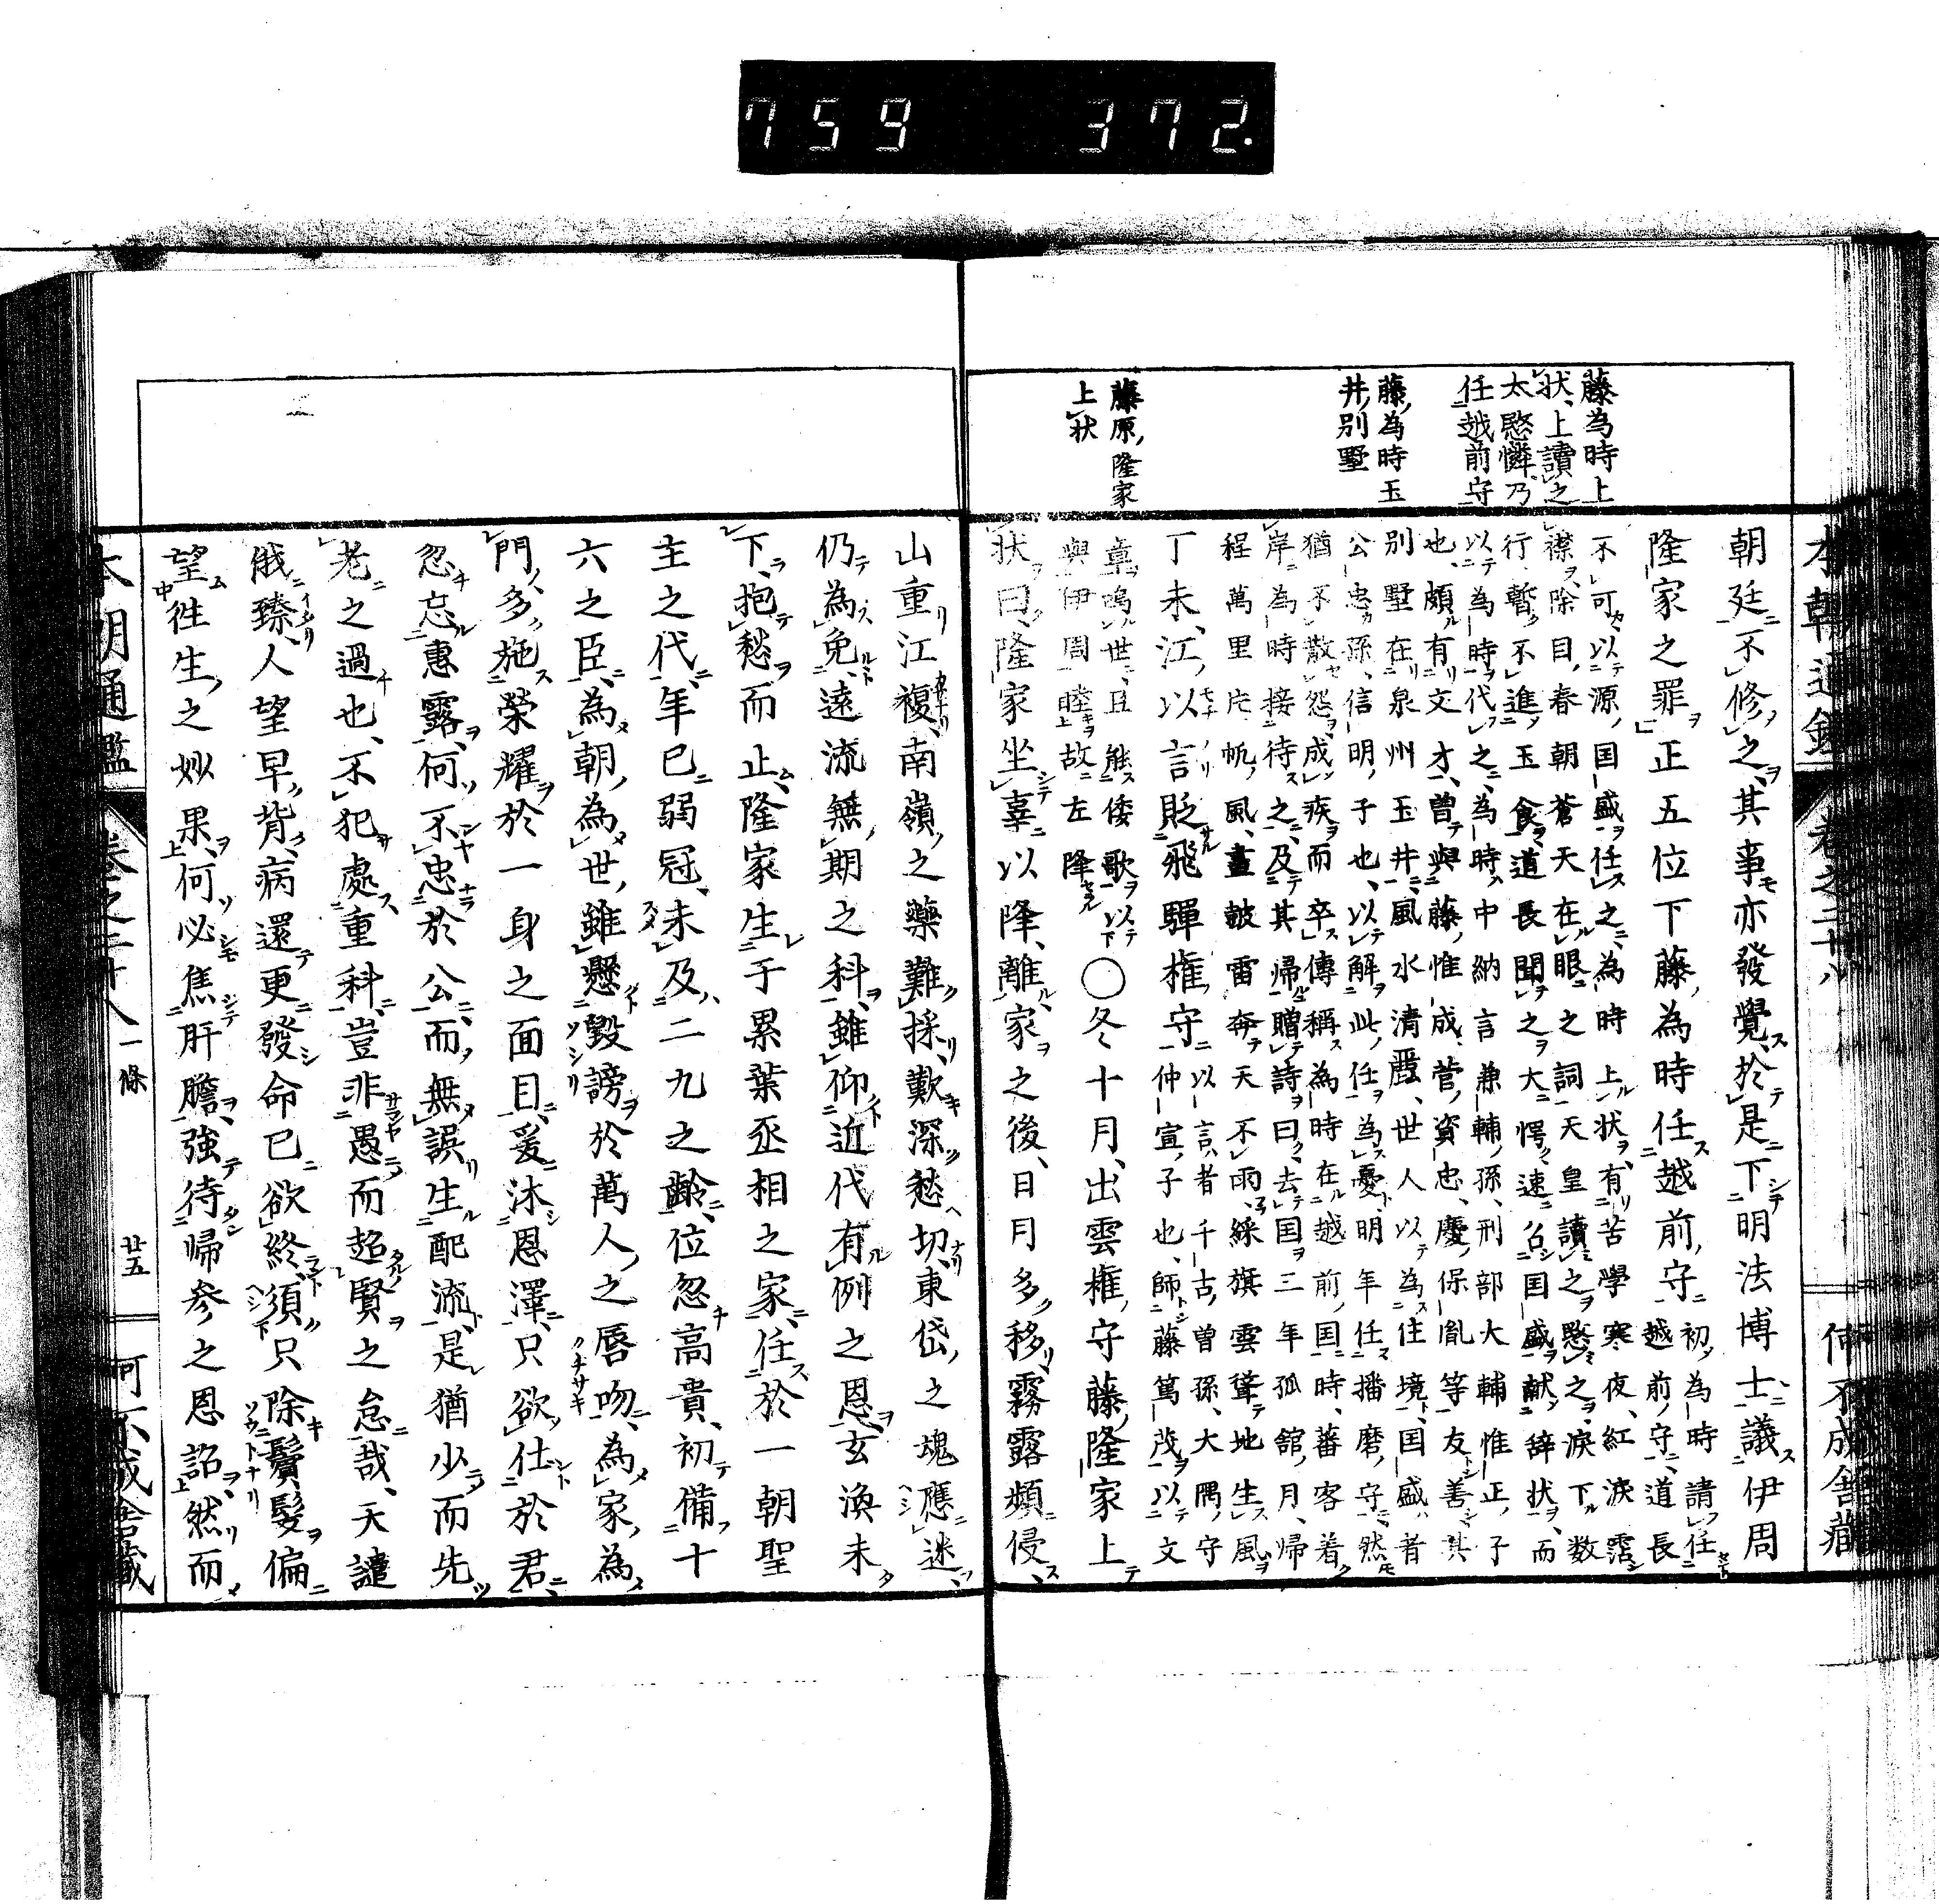 759 372.
藤為時上
状、上讀之
太愍憐、乃
任越前守
藤為時玉
井別墅
藤原隆家
上状
本朝通鑑 卷之二十八 何不成舎蔵
朝廷不修之、其事亦發覺、於是下明法博士議伊周
隆家之罪、正五位下藤為時任越前守
初為時請任
越前守、道長
不可以源国盛任之、為時上状、有苦學寒夜、紅淚霑
襟、除目春朝、蒼天在眼之詞、天皇讀之愍之、淚下数
行、暫不進玉食、道長聞之大愕、速召国盛献辞状、而
以為時代之、為時中納言兼輔孫、刑部大輔惟正子
也、頗有文才、曽與藤惟成、菅資忠、慶保胤等友善、其
別墅在泉州玉井、風水清麗、世人以為住境、国盛者
公忠孫、信明子也、以解此任為憂、明年任播磨守、然
猶不散怨成疾而卒、傳稱為時在越前国時、蕃客着
岸、為時接待之、及其帰贈詩曰、去国三年孤舘月、帰
程萬里片帆風、畫皷雷奔天不雨、綵旗雲聳地生風
丁未、江以言貶飛騨権守
以言者千古曽孫、大隅守
仲宣子也、師藤篤茂、以文
章鳴世、且能倭歌、以
與伊周睦故左降
○冬十月、出雲権守藤隆家上
状曰、隆家坐辜以降、離家之後、日月多移、霧露頻侵、
山重江複、南嶺之藥難採、歎深愁切、東岱之魂應迷、
仍為免遠流無期之科、雖仰近代有例之恩、玄渙未
下、抱愁而止、隆家生于累葉丞相之家、任於一朝聖
主之代、年已弱冠、未及二九之齡、位忽高貴、初備十
六之臣、為朝為世、雖懸毀謗於萬人之唇吻、為家為
門、多施榮耀於一身之面目、爰沐恩澤、只欲仕於君、
忽忘惠露、何不忠於公、而無誤生配流、是猶少而先
老之過也、不犯處重科、豈非愚而超賢之怠哉、天譴
俄臻、人望早背、病還更發、命已欲終、須只除鬢髮偏
望往生之妙果、何必焦肝膽、強待帰参之恩詔、然而
本朝通鑑 卷之二十八 一條 廿五 何不成舎蔵